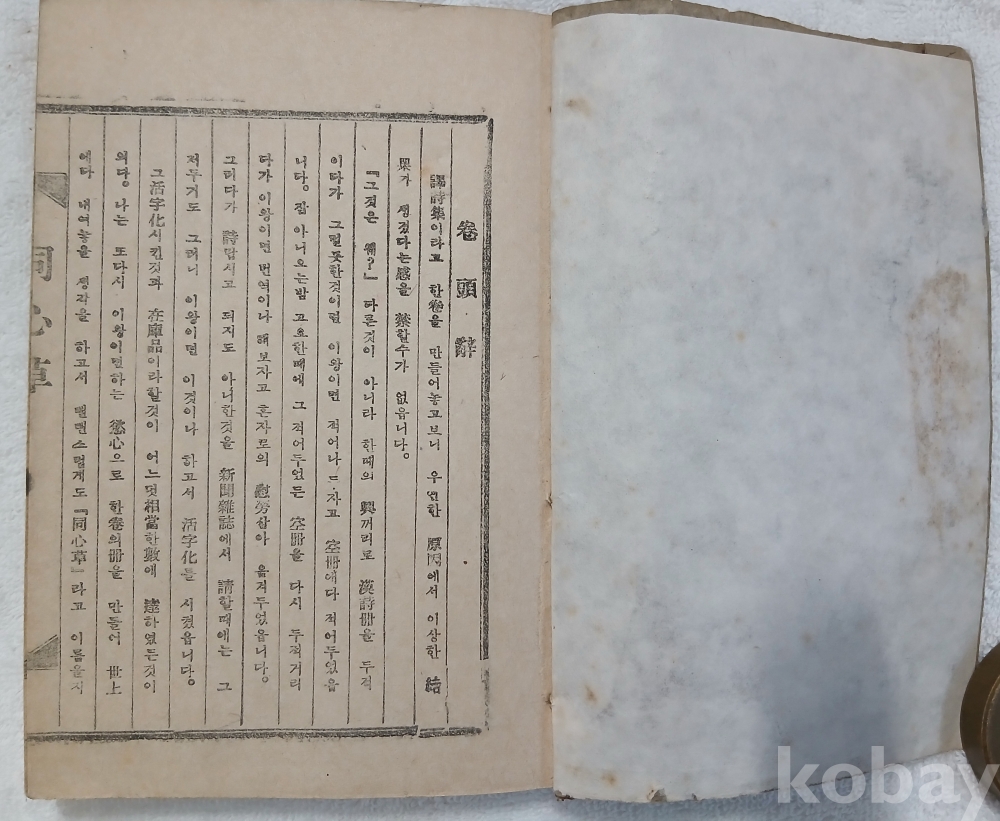 卷頭辭
譯詩集이라고 한卷을 만들어놓고보니 우연한 原因에서 이상한 結
果가 생겼다는感을 禁할수가 없읍니다。
『그것은 웨?』 다른것이 아니라 한때의 興꺼리로 漢詩冊을 두적
이다가 그럴듯한것이면 이왕이면 적어나 자고 空冊에다 적어두었읍
니다。잠 아니오는밤 고요한때에 그 적어두었든 空冊을 다시 두적거리
다가 이왕이면 번역이나 해보자고 혼자로의 慰勞삼아 옮겨두었읍니다。
그러다가 詩답시고 되지도 아니한것을 新聞雜誌에서 請할때에는 그
저두기도 그러니 이왕이면 이것이나 하고서 活字化를 시켰읍니다。
그活字化시킨것과 在庫品이라할것이 어느덧相當한數에 達하였든것이
외다。나는 또다시 이왕이면하는 慾心으로 한卷의冊을 만들어 世上
에다 내여놓을 생각을 하고서 맨맨스럽게도『同心草』라고 이름을지
同心草
kobay